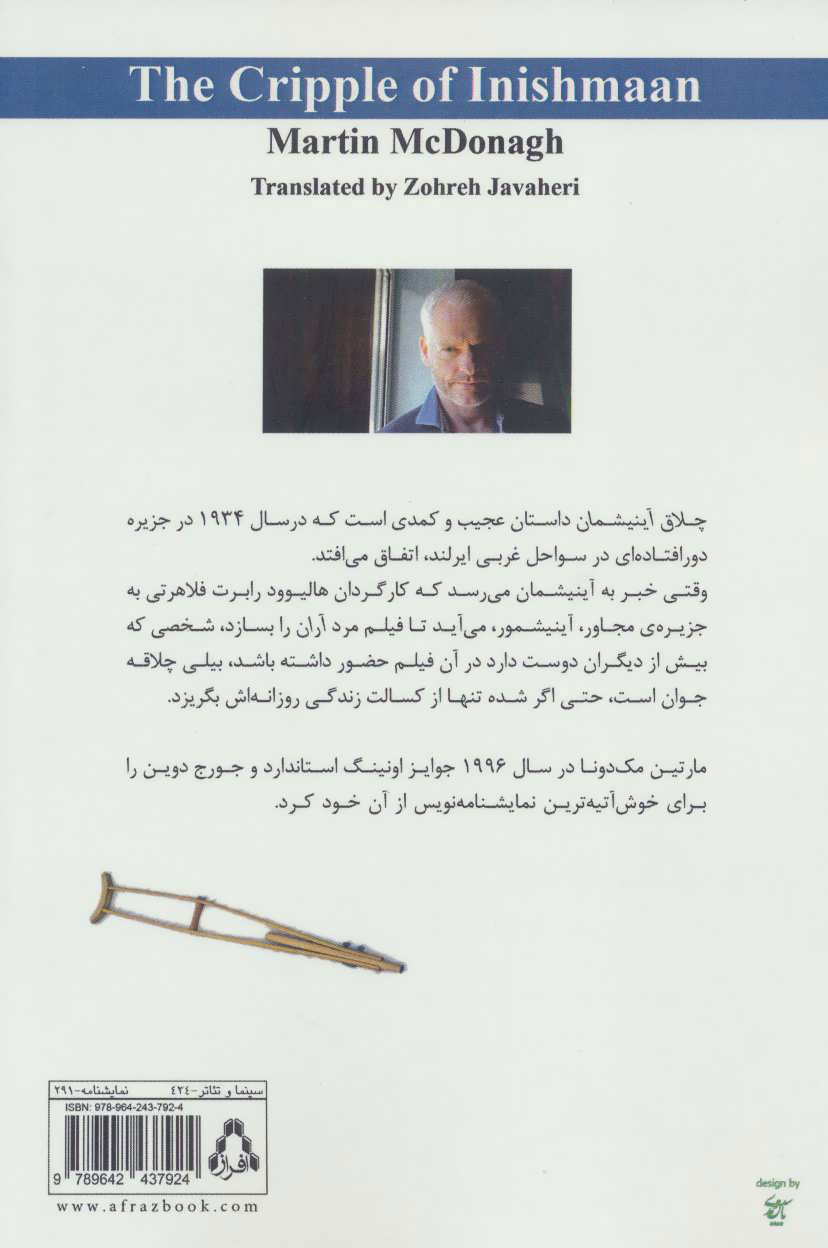 The Cripple of Inishmaan
Martin McDonagh
Translated by Zohreh Javaheri
چلاق آینیشمان داستان عجیب و کمدی است که درسال ۱۹۳۴ در جزیره
دورافتاده‌ای در سواحل غربی ایرلند، اتفاق می‌افتد.
وقتی خبر به آینیشمان می‌رسد که کارگردان هالیوود رابرت فلاهرتی به
جزیره‌ی مجاور، آینیشمور، می‌آید تا فیلم مرد آران را بسازد، شخصی که
بیش از دیگران دوست دارد در آن فیلم حضور داشته باشد، بیلی چلاقه
جوان است، حتی اگر شده تنها از کسالت زندگی روزانه‌اش بگریزد.
مارتین مک‌دونا در سال ۱۹۹۶ جوایز اونینگ استاندارد و جورج دوین را
برای خوش‌آتیه‌ترین نمایشنامه‌نویس از آن خود کرد.
سینما و تئاتر-٤٢٤ نمایشنامه-۲۹۱
ISBN: 978-964-243-792-4
افراز
9 789642 437924
www.afrazbook.com
design by